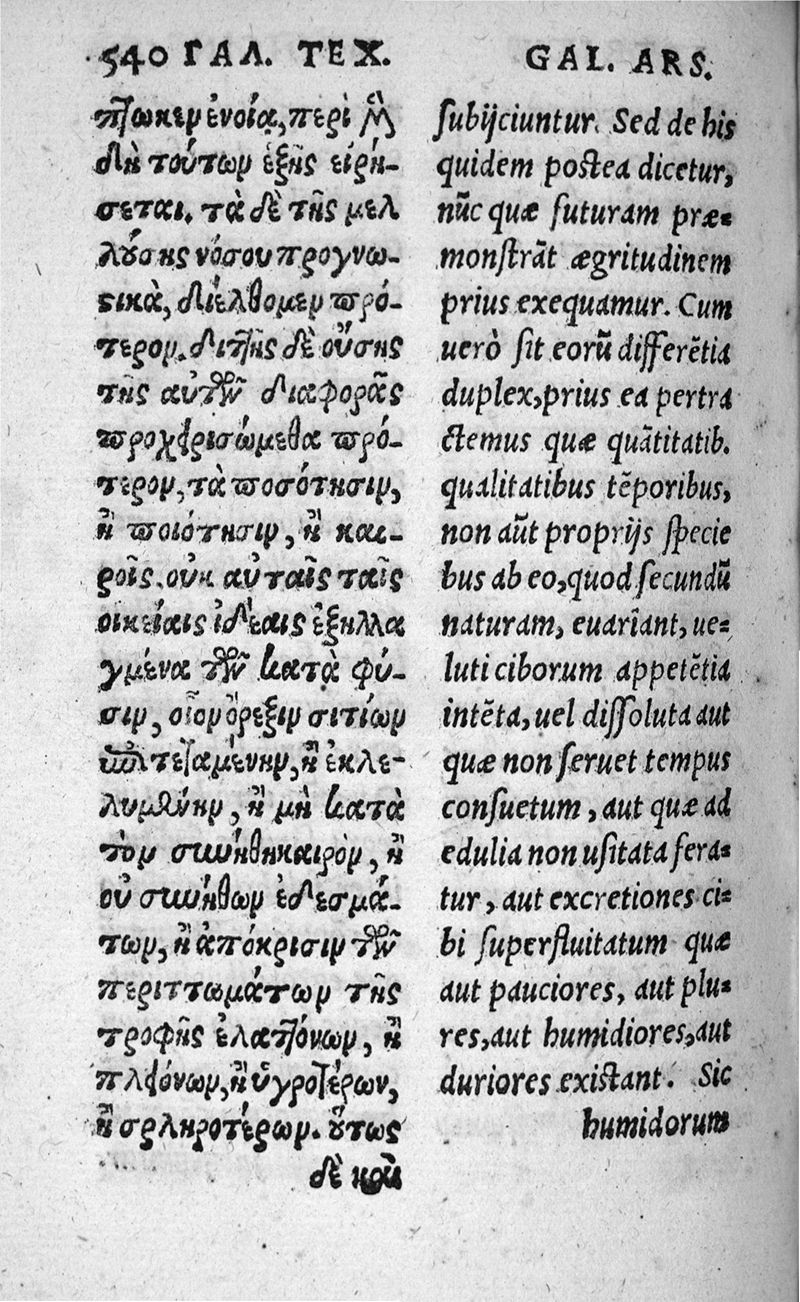 540 ΓΑΛ. ΤΕΧ.
πτωκεν ἐνοίᾳ, περὶ μὲν
δὴ τούτων ἑξῆς εἰρή-
σεται. τὰ δὲ τῆς μελ
λούσης νόσου προγνω-
στικὰ, διέλθομεν πρό-
τερον. διττῆς δὲ οὔσης
τῆς αὐτῶν διαφορᾶς
προχειρισώμεθα πρό-
τερον, τὰ ποσότησιν,
ἢ ποιότησιν, ἢ και-
ροῖς. οὐκ αὐταῖς ταῖς
οἰκείαις ἰδέαις ἐξηλλα
γμένα τῶν κατὰ φύ-
σιν, οἷον ὄρεξιν σιτίων
ἐπιτεταμένην, ἢ ἐκλε-
λυμένην, ἢ μὴ κατὰ
τὸν συνήθη καιρὸν, ἢ
οὐ συνήθων ἐδεσμά-
των, ἢ ἀπόκρισιν τῶν
περιττωμάτων τῆς
τροφῆς ἐλαττόνων, ἢ
πλειόνων, ἢ ὑγροτέρων,
ἢ σκληροτέρων. οὕτως
δὲ καὶ
GAL. ARS.
subijciuntur. Sed de his
quidem postea dicetur,
nūc quæ futuram præ-
monstrāt ægritudinem
prius exequamur. Cum
uerò sit eorū differētia
duplex, prius ea pertra
ctemus quæ quātitatib.
qualitatibus tēporibus,
non aūt proprijs specie
bus ab eo, quod secundū
naturam, euariant, ue-
luti ciborum appetētia
intēta, uel dissoluta aut
quæ non seruet tempus
consuetum, aut quæ ad
edulia non usitata fera-
tur, aut excretiones ci-
bi superfluitatum quæ
aut pauciores, aut plu-
res, aut humidiores, aut
duriores existant. Sic
humidorum